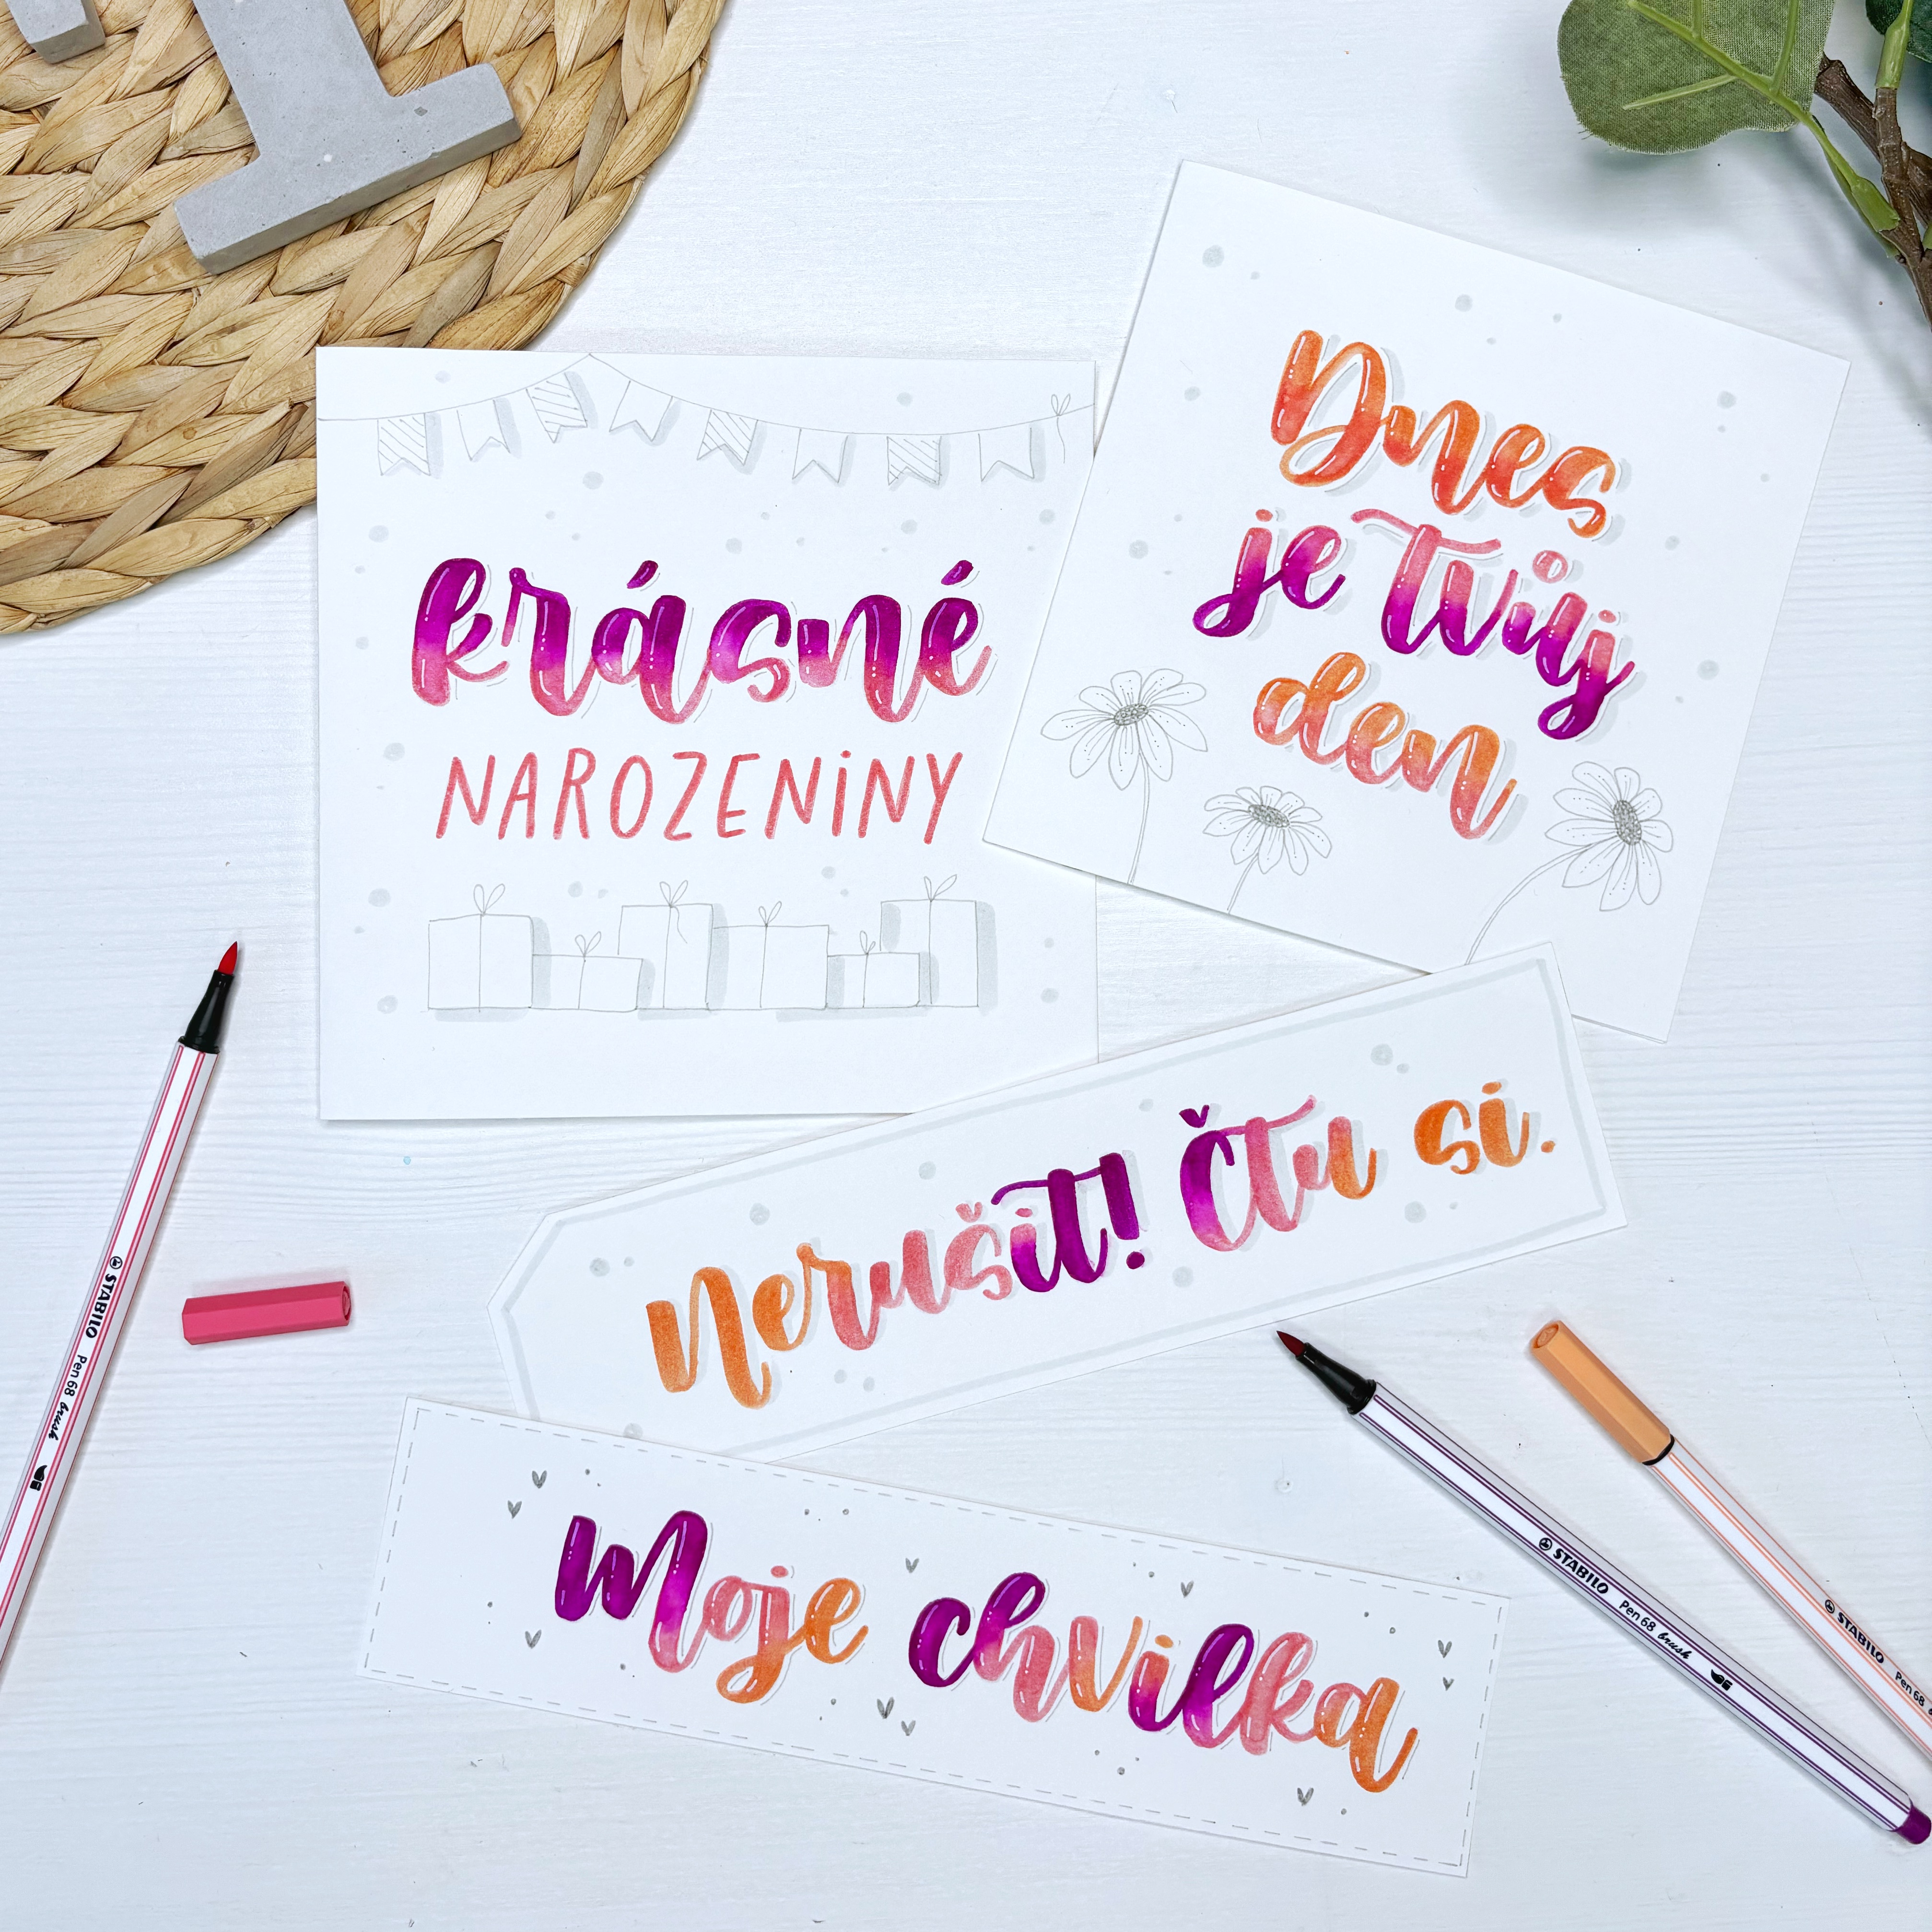 krásné
NAROZENiNY
Dnes
je tvůj
den
Nerušit! Čtu si.
Moje chvilka
STABILO Pen 68 brush
STABILO Pen 68 brush
STABILO Pen 68